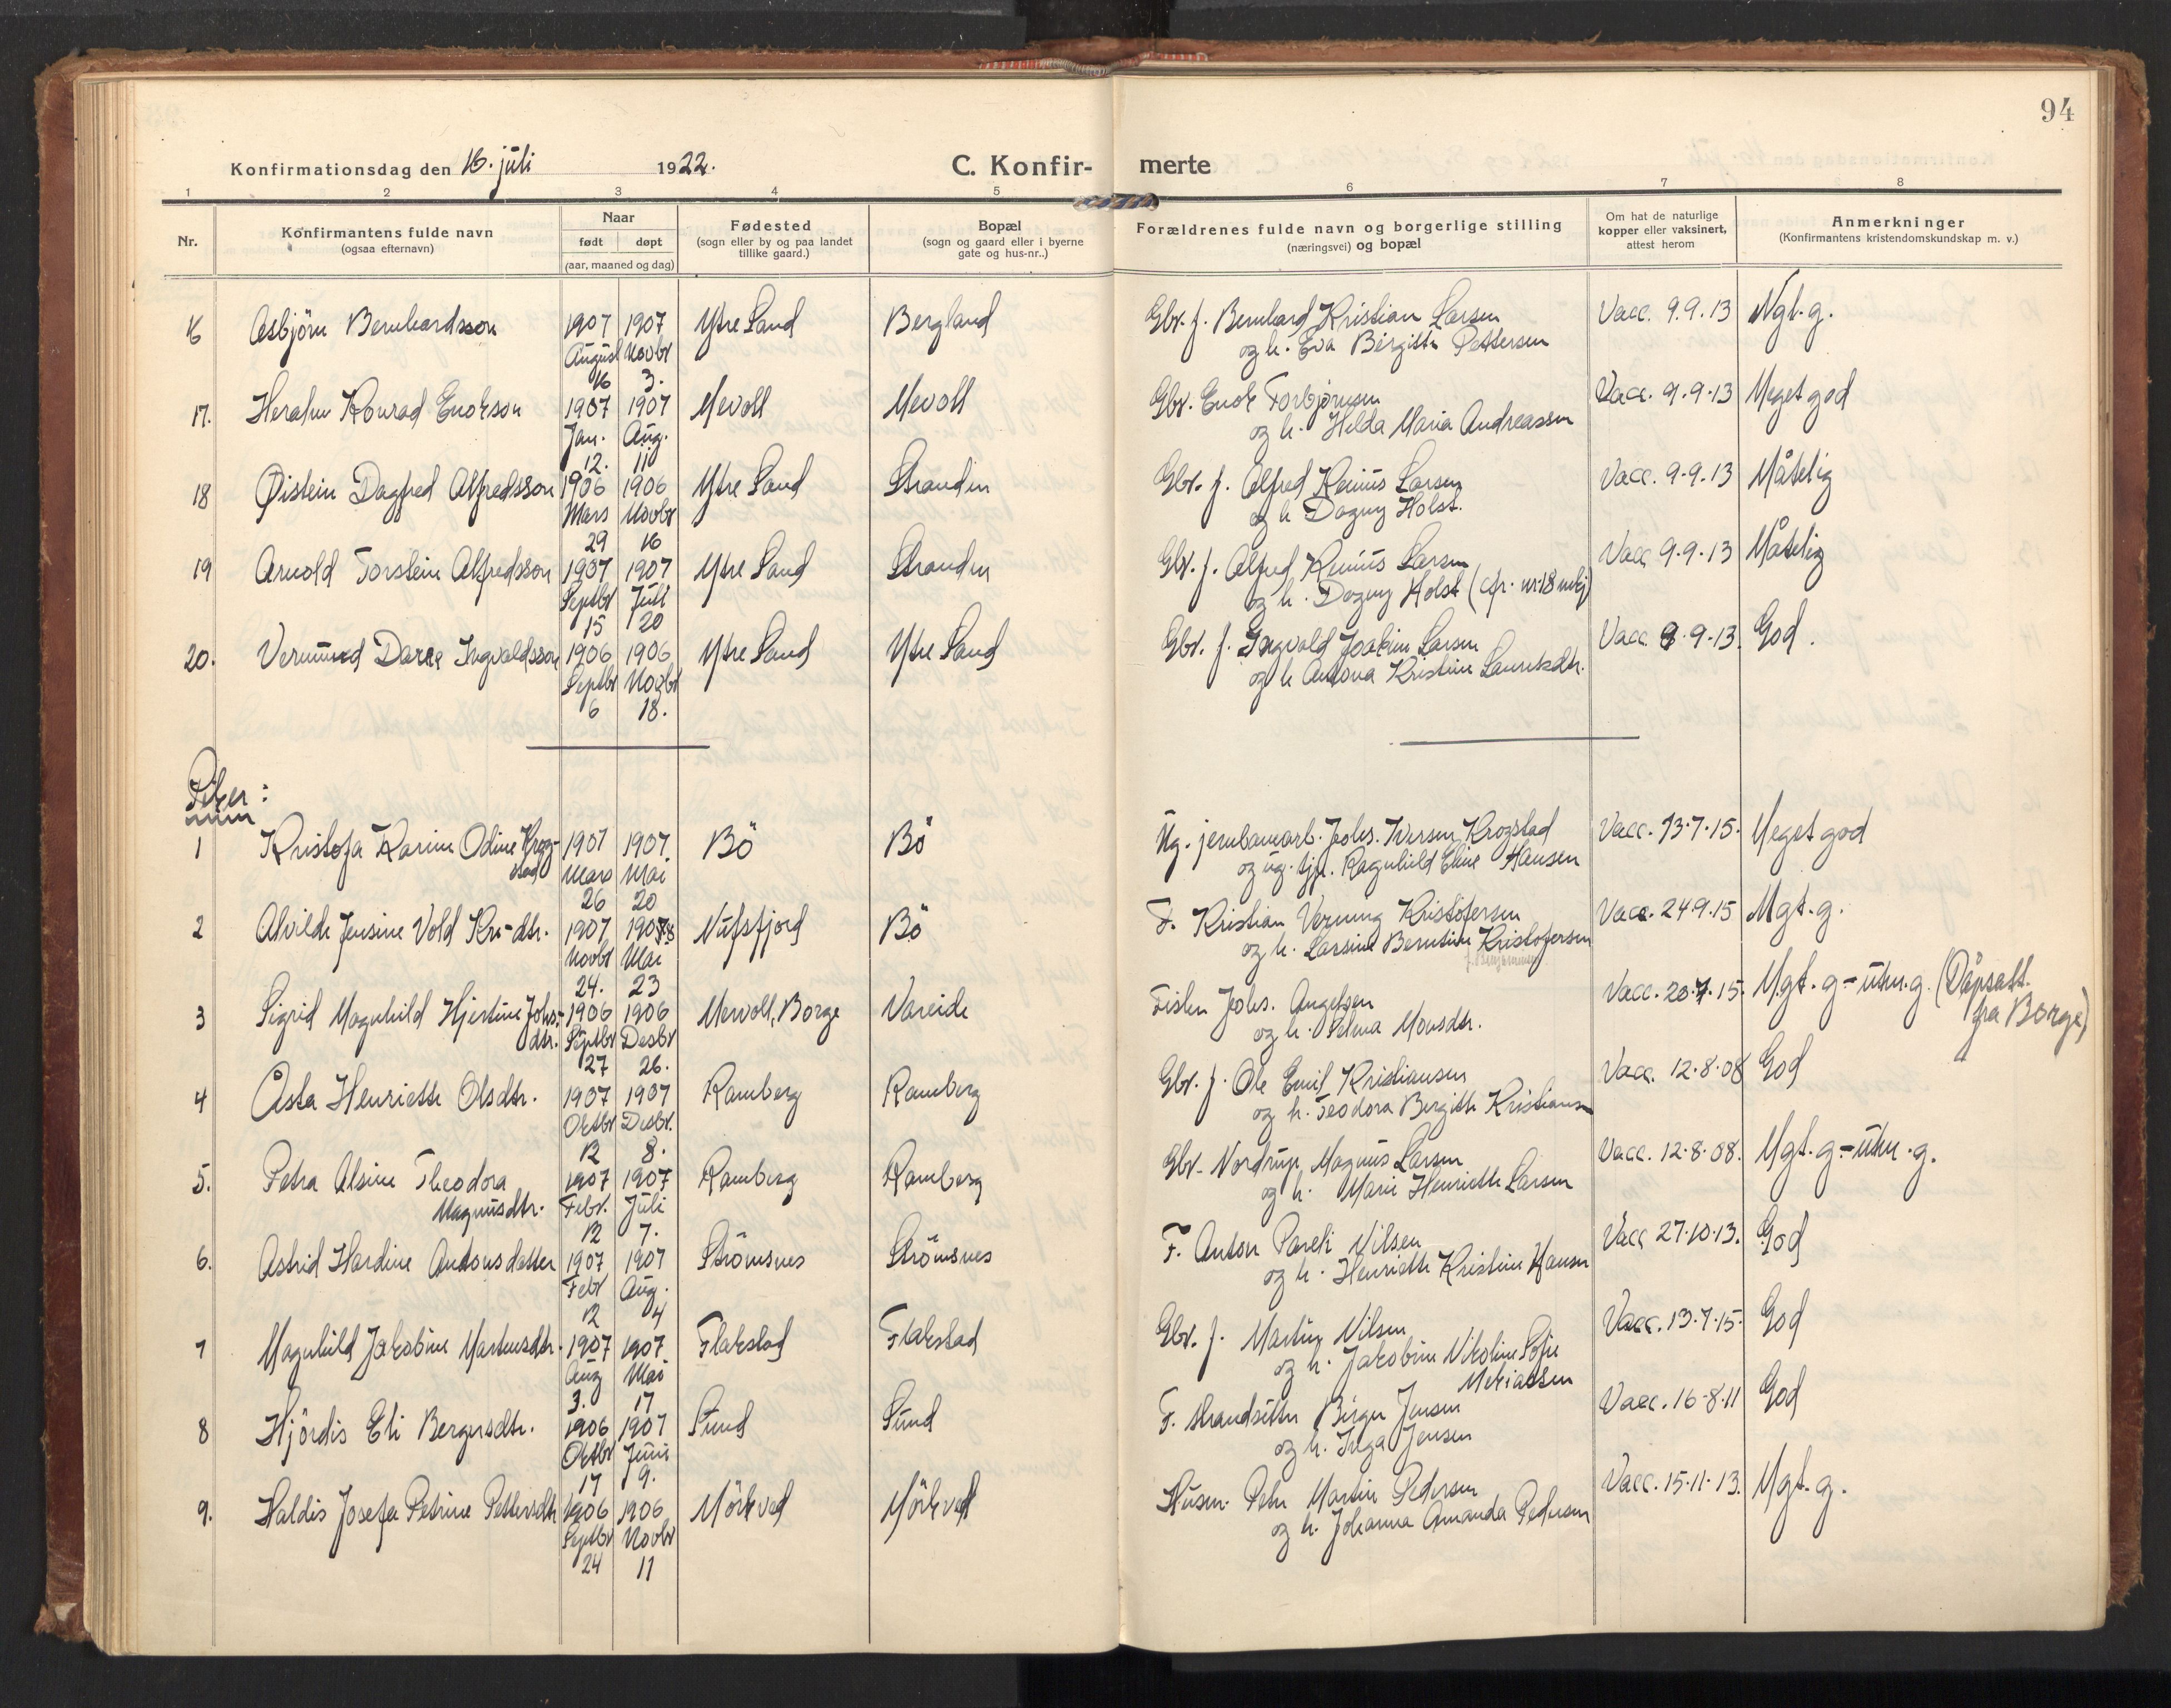 94
Konfirmationsdag den 16. juli 1922. C. Konfir- merte
1 2 3 4 5 6 7 8
Nr. Konfirmantens fulde navn (ogsaa efternavn) Naar født døpt (aar, maaned og dag) Fødested (sogn eller by og paa landet tillike gaard.) Bopæl (sogn og gaard eller i byerne gate og hus-nr..) Forældrenes fulde navn og borgerlige stilling (næringsvei) og bopæl Om hat de naturlige kopper eller vaksinert, attest herom Anmerkninger (Konfirmantens kristendomskundskap m. v.)
16 Asbjörn Bernhardsson 1907 1907 Ytre Sand Bergland Gbr. f. Bernhard Kristian Larsen Vacc. 9.9.13 Mgt. g.
August Novbr og h. Eva Birgitte Pettersen
16 3.
17. Herahn Konrad Enoksson 1907 1907 Mevoll Mevoll Gbr. Enok Torbjörnsen Vacc. 9.9.13 Meget god
Jan. Aug. og h. Hilda Maria Andreassen
12. 11
18 Øistein Dagfred Alfredsson 1906 1906 Ytre Sand Stranden Gbr. f. Alfred Remius Larsen Vacc. 9.9.13 Måtelig
Mars Novbr og h Dagny Holst.
29 16
19 Arnold Torstein Alfredsson 1907 1907 Ytre Sand Stranden Gbr. f. Alfred Remius Larsen Vacc 9.9.13 Måtelig
Septbr Juli og h. Dagny Holst (cfr. nr. 18)
15 20
20. Vermund Ingvaldsson 1906 1906 Ytre Sand Ytre Sand Gbr. f. Ingvald Joakim Larsen Vacc 9.9.13. God.
Septbr Novbr og h Antona Kristine Lauriksdtr.
6 18.
Piker:
1 Kristofa Karine Odine Krog- 1907 1907 Bö Bö Ug. jernbanearb. Johs. Iversen Krogstad Vacc. 13.7.15. Meget god
stad Mars Mai og ug. tjp. Ragnhild Eline Hansen
26 20
2 Alvilde Jensine Vold Kri-dtr. 1907 1908 Nufsfjord Bö F. Kristian Verning Kristofersen Vacc. 24.9.15 Mgt. g.
Novbr Mai og h. Larsine Berntine Kristofersen
24. 23 f. Benjaminsen
3 Sigrid Magnhild Hjertine Johs.- 1906 1906 Mervoll, Borge Vareide Fisker Johs. Angelsen Vacc. 20.7.15. Mgt. g - utm. g. (Dåpsatt.
dtr. Septbr Desbr og h. Selma Monsdtr. fra Borge)
27 26.
4 Åsta Henriette Olsdtr. 1907 1907 Ramberg Ramberg Gbr. f. Ole Emil Kristiansen Vacc. 12.8.08 God
Oktbr Desbr. og h. Teodora Bergitte Kristiansen
12 8.
5. Petra Alsine Theodora 1907 1907 Ramberg Ramberg Gbr. Nordrup Magnus Larsen Vacc. 12.8.08. Mgt. g - utm. g.
Magnusdtr. Febr. Juli og h. Marie Henriette Larsen
12 7.
6. Astrid Hardine Antonsdatter 1907 1907 Strömsnes Strömsnes F. Anton Pareli Nilsen Vacc 27.10.13. God
Febr Aug. og h. Henriette Kristine Hansen
12 4
7 Magnhild Jakobine Martensdtr. 1907 1907 Flakstad Flakstad Gbr. f. Martin Nilsen Vacc. 13.7.15. God
Aug Mai og h. Jakobine Nikoline Sofie
3. 17 Mekiassen
8 Hjördis Eli Bergersdtr. 1906 1907 Sund Sund F. strandsitter Birger Jensen Vacc. 16.8.11 God
Oktbr Juni og h. Inga Jensen
17 9.
9. Haldis Josefa Petrine Pettersdtr 1906 1906 Mörkved Mörkved Husm. Peter Martin Pedersen Vacc. 15.11.13. Mgt. g.
Septbr Novbr og h. Johanna Amanda Pedersen
24 11